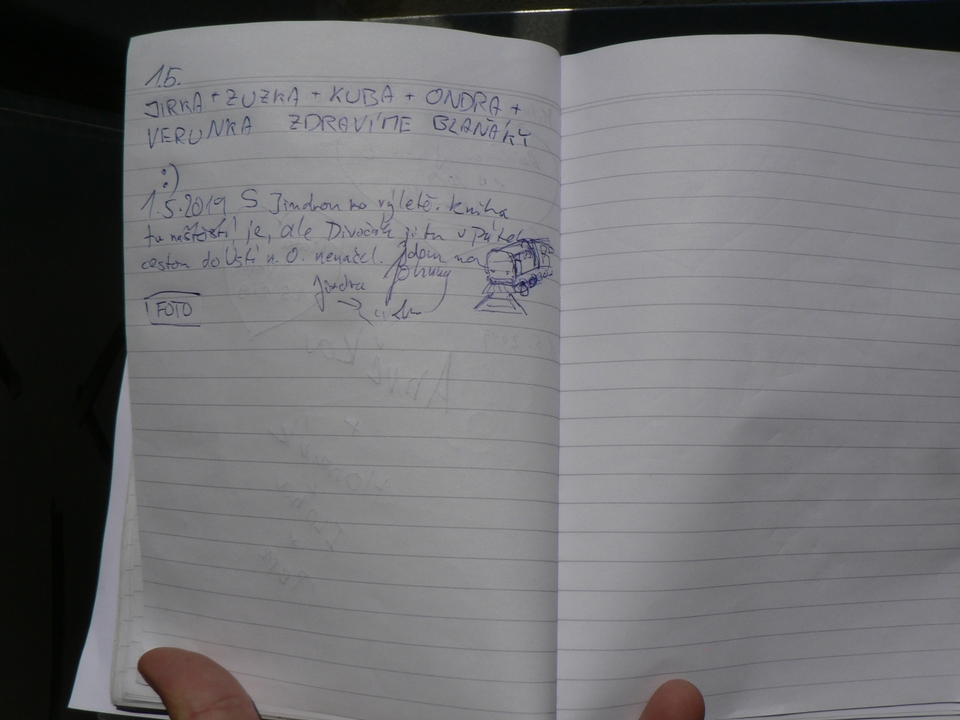 1.5.
JIRKA + ZUZKA + KUBA + ONDRA +
VERUNKA ZDRAVÍME BLAŇÁKY
:)
1.5.2019 S Jindrou na výletě. Kniha
tu naštěstí je, ale Divočák ji tu v pátek
cestou do Ústí n. O. nenašel. Jdem na
Jindra
FOTO